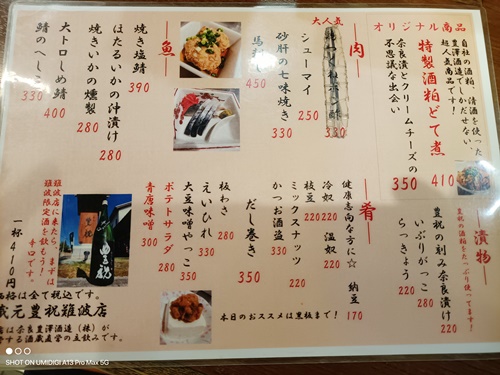 オリジナル商品
自社の酒粕、清酒を使った
豊澤酒造でしかだせない、
超人気商品です!
特製酒粕どて煮
410
奈良漬とクリームチーズの
不思議な出会い
350
大人気
肉
330
シューマイ
250
砂肝の七味焼き
330
馬刺し
450
魚
焼き塩鯖
390
ほたるいかの沖漬け
280
焼きいかの燻製
280
大トロしめ鯖
400
鯖のへしこ
330
漬物
豊祝の酒粕をたっぷり使ってます!
豊祝の刻み奈良漬け
220
いぶりがっこ
280
らっきょう
220
肴
健康志向な方に☆
納豆
170
冷奴
220
温奴
220
枝豆
220
ミックスナッツ
220
かつお酒盗
330
だし巻き
350
板わさ
280
えいひれ
330
大豆味噌やっこ
350
ポテトサラダ
280
青唐味噌
300
本日のおススメは黒板まで!
難波店に来たら、まずは
難波限定酒を飲もう!
辛口です。
一杯410円
価格は全て税込です。
蔵元豊祝難波店
は奈良豊澤酒造(株)が
する酒蔵直営の立飲みです。
SHOT ON UMIDIGI A13 Pro Max 5G